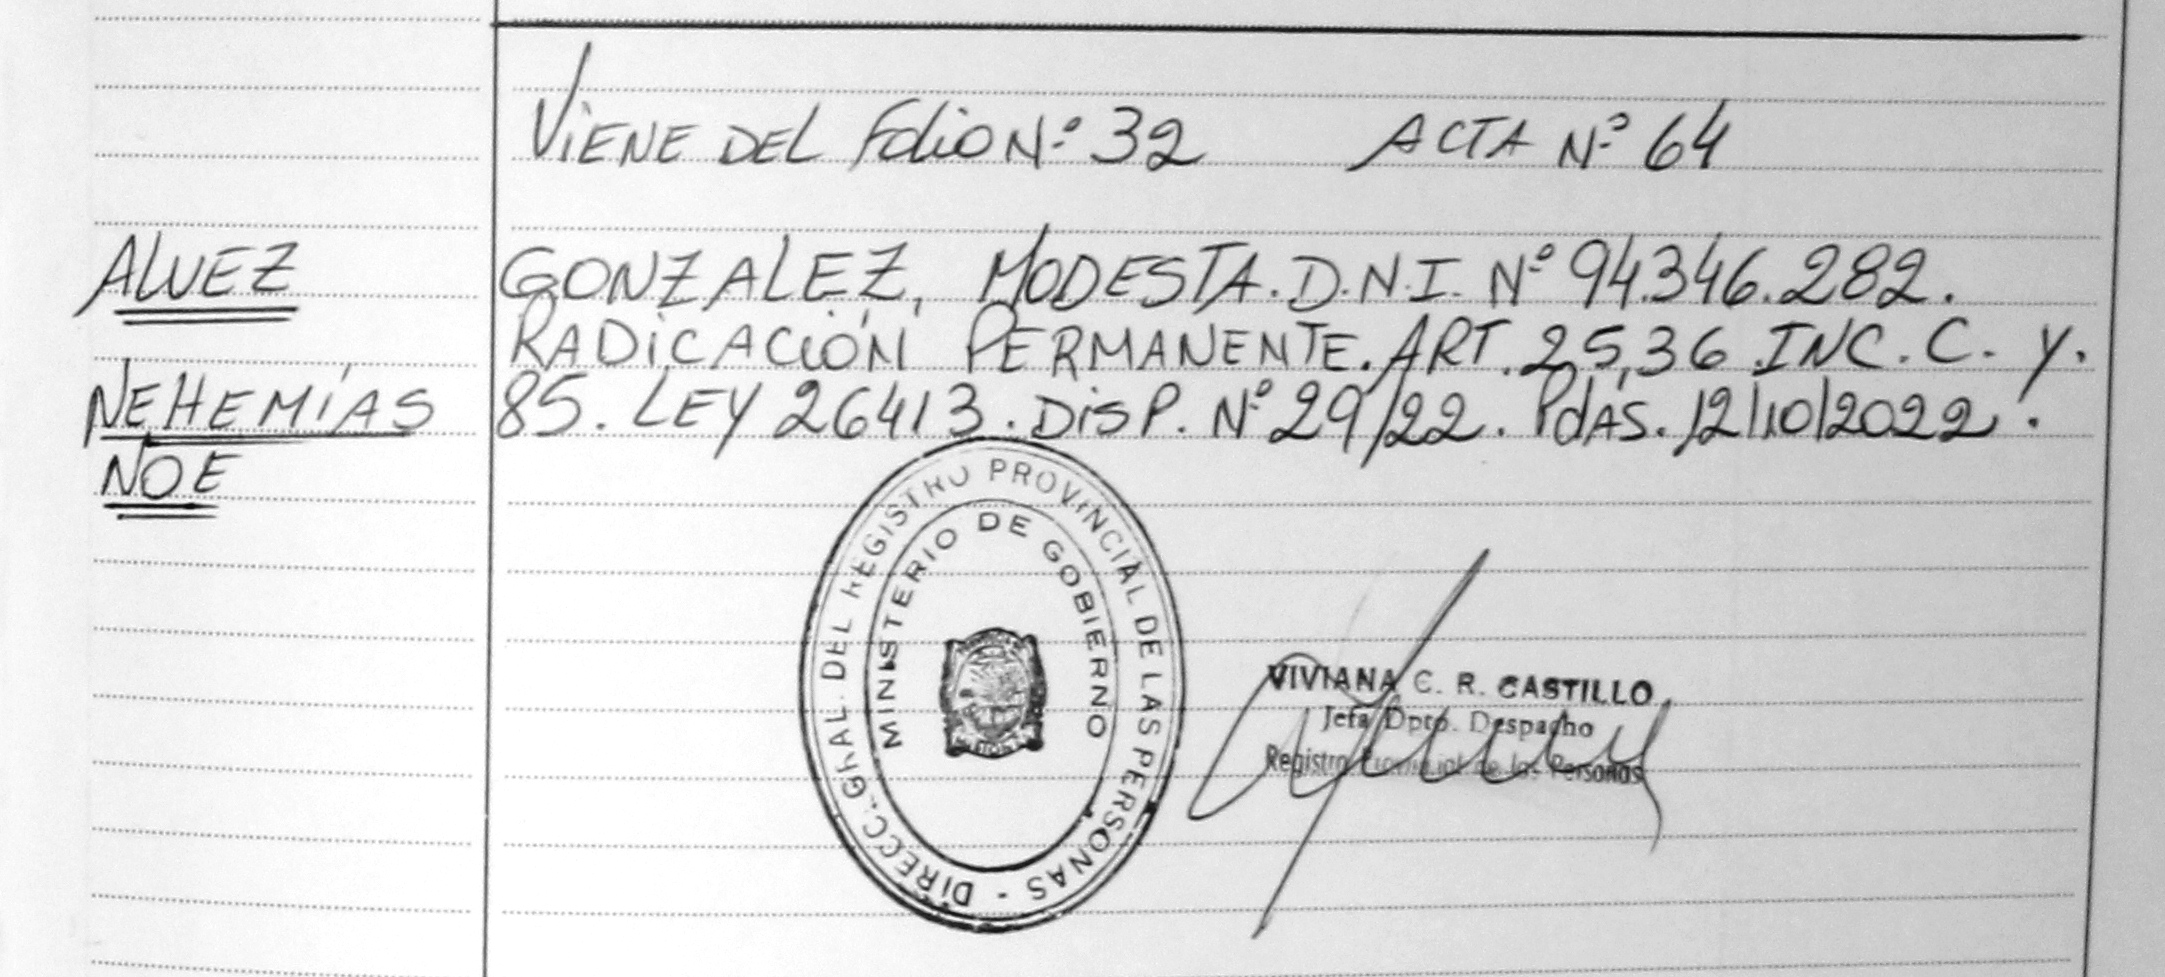 VIENE DEL FOLIO Nº 32 ACTA Nº 64
ALVEZ
NEHEMÍAS
NOE
GONZALEZ, MODESTA. D.N.I. Nº 94.346.282.
RADICACIÓN PERMANENTE. ART. 25,36 INC. C. Y.
85. LEY 26413. DISP. Nº 29/22. Pdas. 12/10/2022.
DIRECC. GRAL. DEL REGISTRO PROVINCIAL DE LAS PERSONAS -
MINISTERIO DE GOBIERNO
VIVIANA C. R. CASTILLO
Jefa Dpto. Despacho
Registro Provincial de las Personas